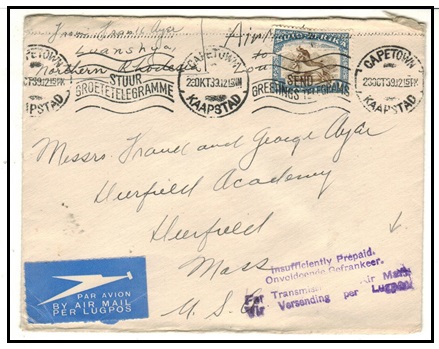 From Frank Ayar
Luanshya,
Northern Rhodesia
CAPETOWN
KAAPSTAD
STUUR
GROETETELEGRAMME
CAPETOWN
23OKT39.12 15PM
KAAPSTAD
SEND
GREETINGS TELEGRAMS
CAPETOWN
23OCT39.12 15PM
KAAPSTAD
Messrs. Frank and George Ayar
Deerfield Academy
Deerfield
Mass
U.S.
Insufficiently Prepaid.
Onvoldoende Gefrankeer.
For Transmission Air Mail
Vir Versending per Lugpos
PAR AVION
BY AIR MAIL
PER LUGPOS